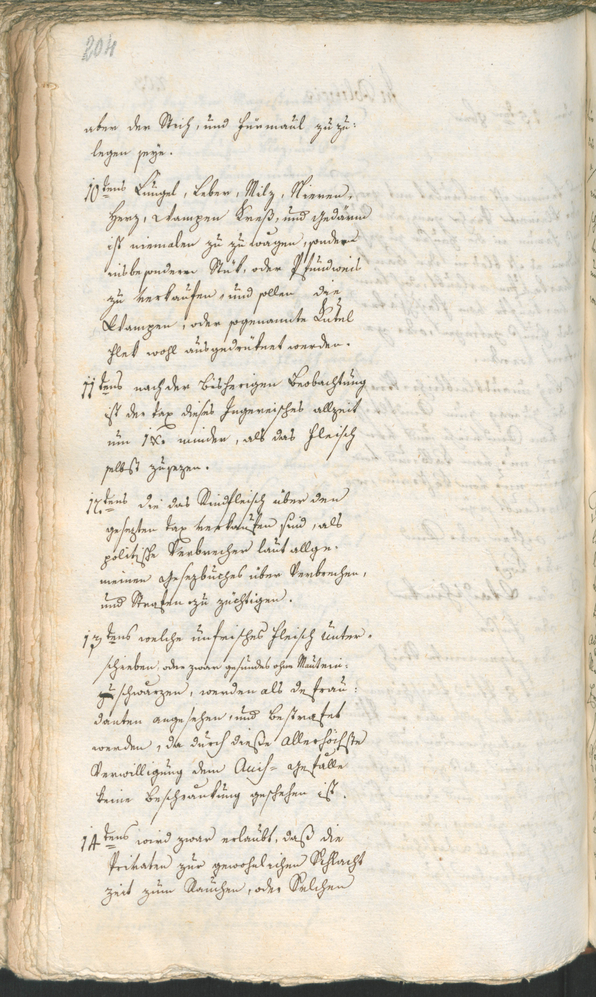 204
aber der Stich, und Fürmaul zu zu:
legen seye.
10tens Lungel, Leber, Milz, Nieren,
Herz, Wampen Kreß, und Gedärm
ist niemalen zu zu wägen, sondern
insbesondere Stuk, oder Pfundweis
zu verkaufen, und sollen die
Wampen, oder sogenannte Kutel
Flek wohl ausgedrüknet werden.
11tens nach der bisherigen Beobachtung
ist der tax dieses Ingereisches allzeit
um 1 xr. minder, als das Fleisch
selbst zusezen.
12tens die das Rindfleisch über den
gesezten tax verkaufen sind, als
politische Verbrecher laut allge-
meinen Gesezbuches über Verbrechen,
und Strafen zu züchtigen.
13tens welche unfrisches Fleisch unter-
schieben, oder zwar gesundes ohne
schwärzen, werden als defrau:
danten angesehen, und bestrafet
werden, da durch dieße allerhöchste
Verwilligung dem Acciß-Gefälle
keine Beschrankung geschehen ist.
14tens wird zwar erlaubt, daß die
Privaten zur gewohnlichen Schlacht
zeit zum Rauchen, oder Selchen